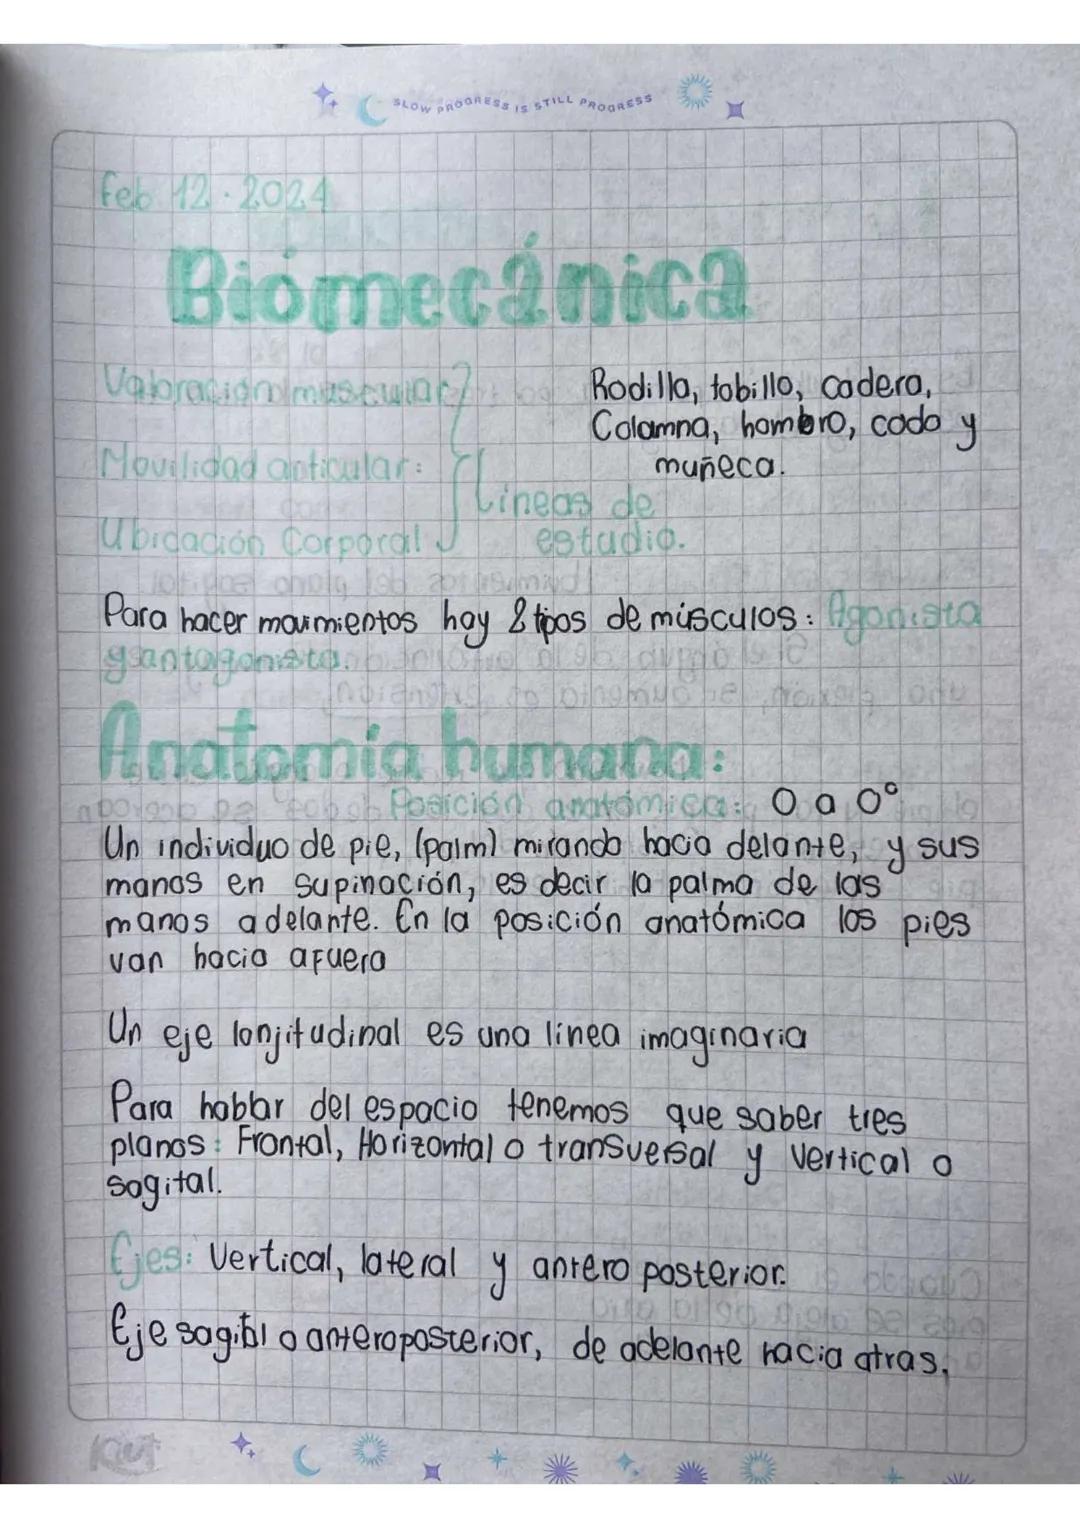 SLOW PROGRESS IS STILL PROGRESS
Feb 12 · 2024
Biomecánica
Valoración muscular
Rodilla, tobillo, cadera,
Colamna, hombro, codo y
muñeca.
Movilidad articular:
Líneas de
estudio.
Ubicación Corporal
Para hacer movimientos hay 2 tipos de músculos: Agonista
y antagonista.
Anatomía humana:
Posición anatómica: 0 a 0°
Un individuo de pie, (palm) mirando hacia delante, y sus
manos en supinación, es decir la palma de las
manos adelante. En la posición anatómica los pies
van hacia afuera
Un eje lonjitudinal es una linea imaginaria
Para hablar del espacio tenemos que saber tres
planos: Frontal, Horizontal o transversal y vertical o
sagital.
Ejes: Vertical, lateral y antero posterior.
Eje sagital o anteroposterior, de adelante hacia atras.